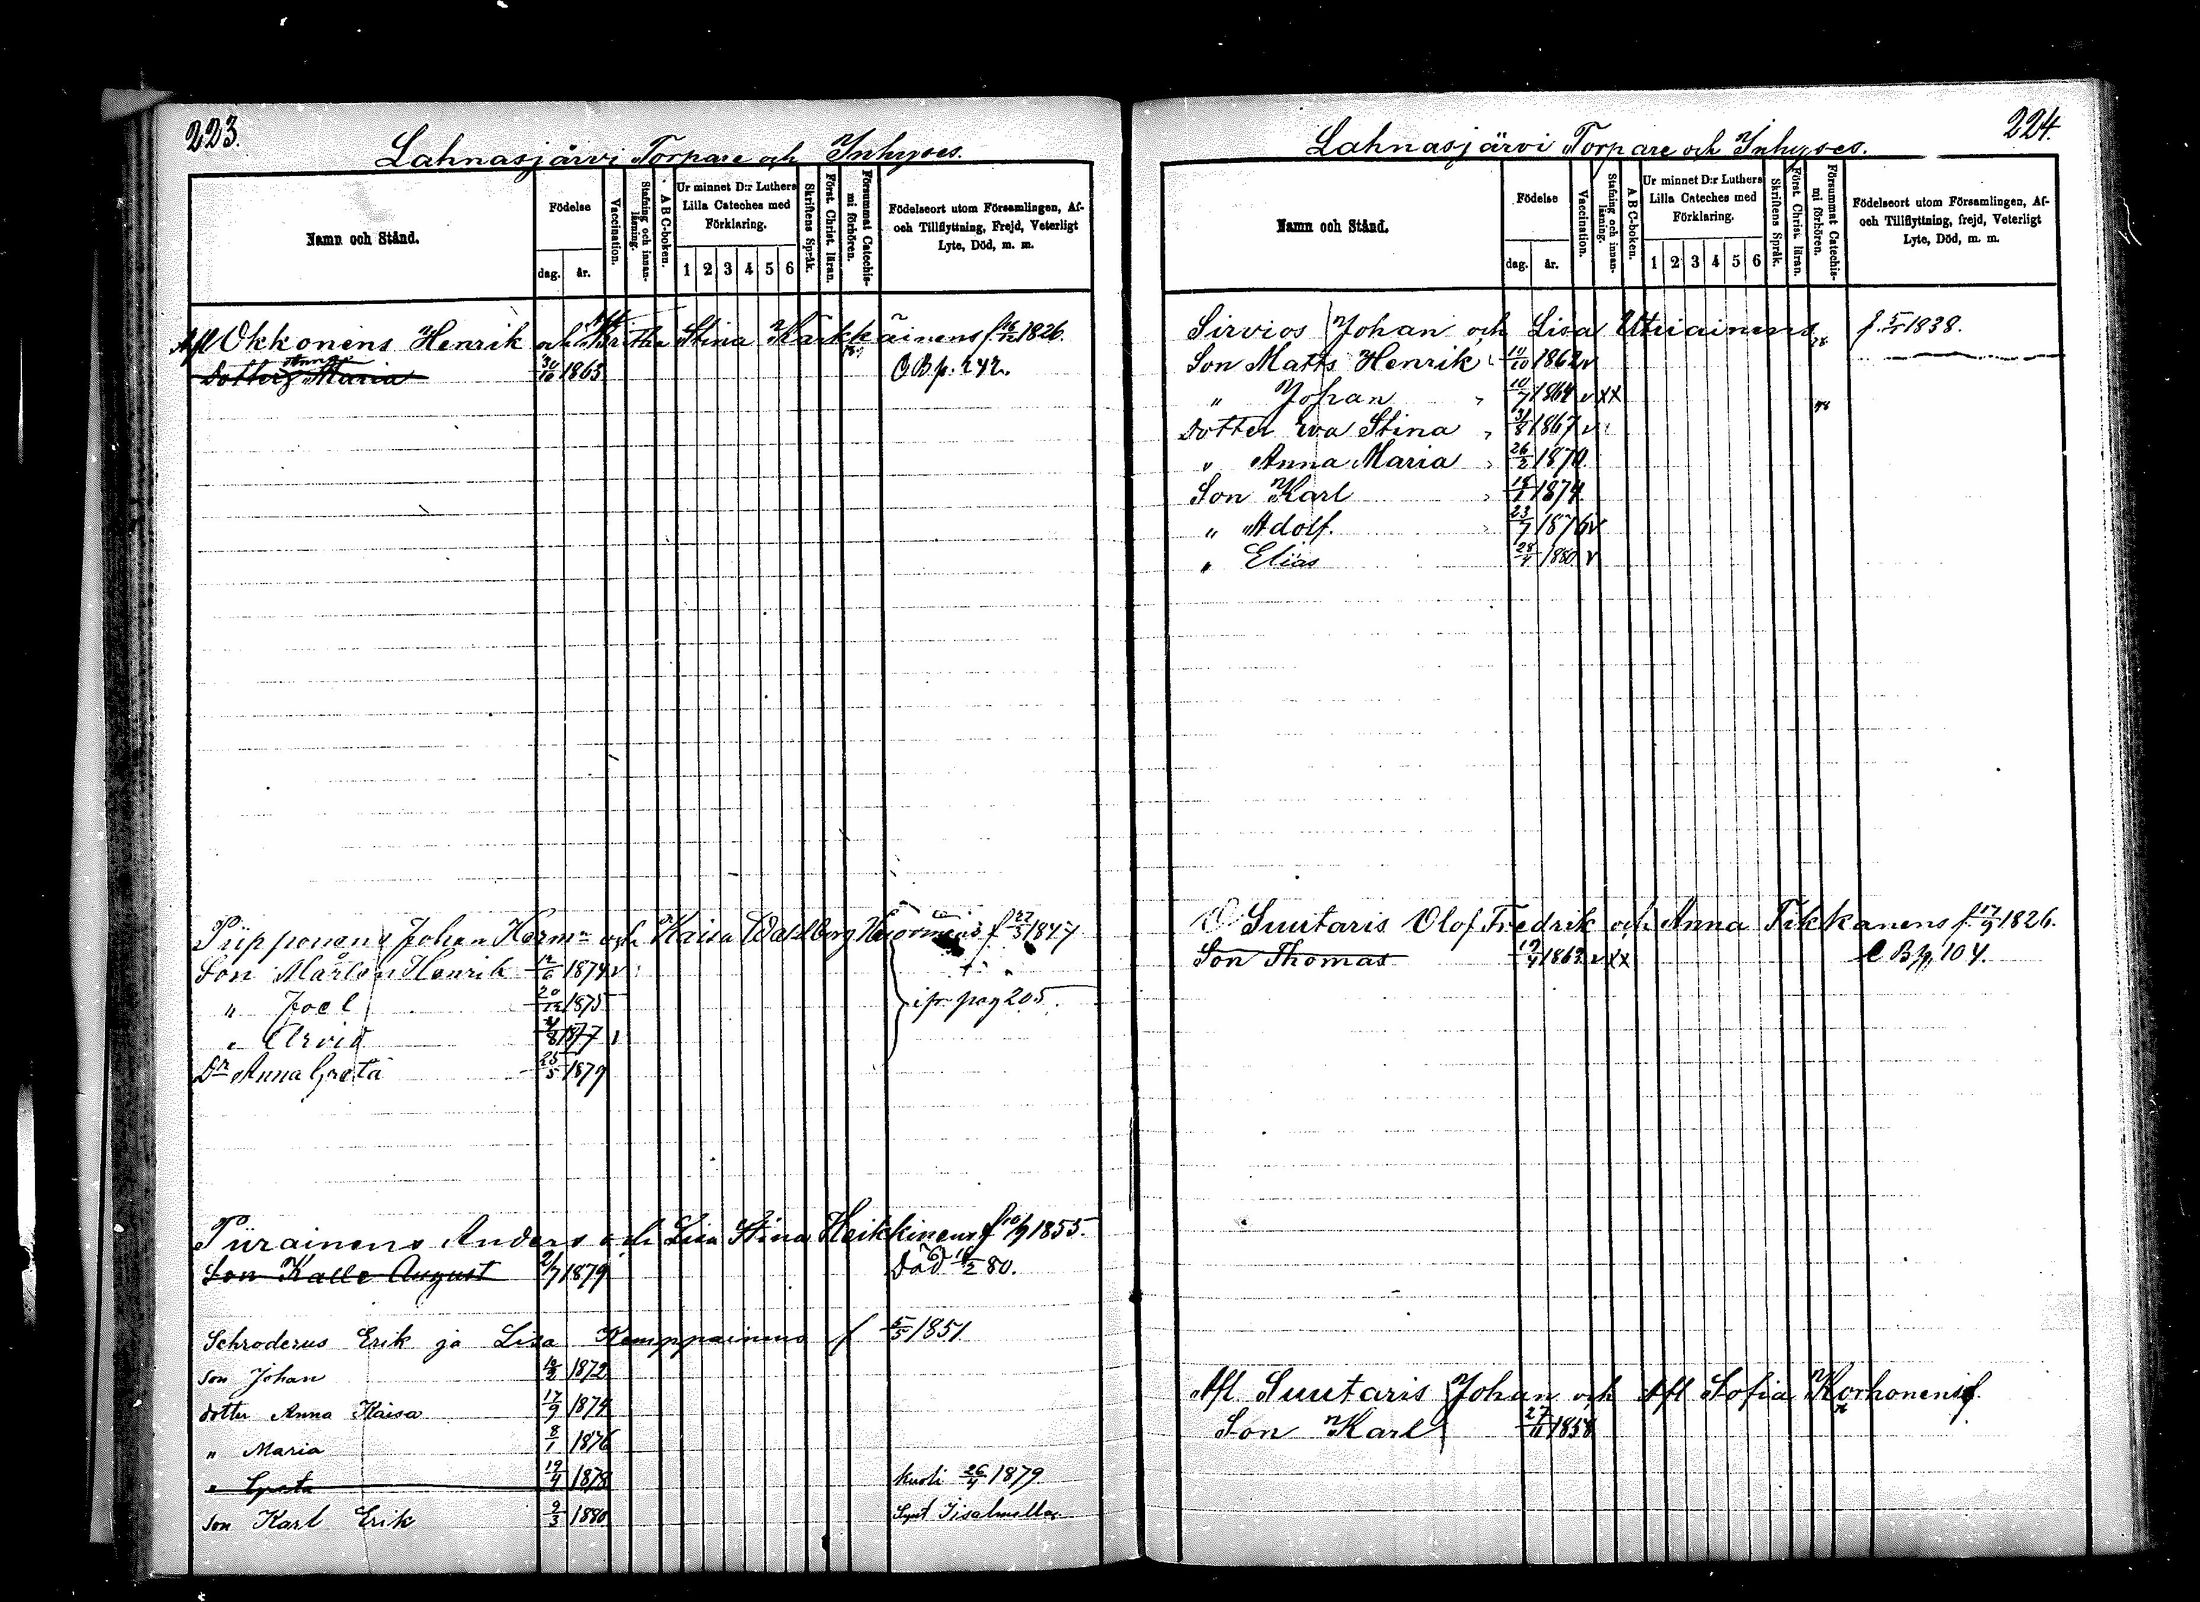 223.
Lahnasjärvi Torpare och Inhyses.
Namn och Stånd.
Födelse
dag.
år.
Vaccination.
Stafning och innan-
läsning.
A B C-boken.
Ur minnet D:r Luthers
Lilla Cateches med
Förklaring.
1 2 3 4 5 6
Skriftens Språk.
Först. Christ. läran.
Försummat Catechis-
mi förhören.
Födelseort utom Församlingen, Af-
och Tillflyttning, Frejd, Veterligt
Lyte, Död, m. m.
Afl Okkonens Henrik och Britha Stina Karkkäinens f. 1826.
Dotter Anna Maria 30/10 1863 O B p. 242.
Piipponens Johan Herm och Kaisa f 22/3 1847
Son Henrik 1874 v
" Joel 20/12 1875 ifr. pag 205.
" Arvid 1877
Dr Anna Greta 25/5 1879
Piirainens Anders och Lisa Stina Heikkinens f 10/9 1855.
Son Kalle August 2/7 1879 Död 80.
Schroderus Erik ja Lisa Kemppainens f 5/5 1851
Son Johan 1872
dotter Anna Kaisa 17/9 1874
" Maria 8/1 1876
" Greta 19/4 1878 kuoli 26/4 1879
Son Karl Erik 1880 Synt Iisalmella
224.
Lahnasjärvi Torpare och Inhyses.
Namn och Stånd.
Födelse
dag.
år.
Vaccination.
Stafning och innan-
läsning.
A B C-boken.
Ur minnet D:r Luthers
Lilla Cateches med
Förklaring.
1 2 3 4 5 6
Skriftens Språk.
Först. Christ. läran.
Försummat Catechis-
mi förhören.
Födelseort utom Församlingen, Af-
och Tillflyttning, frejd, Veterligt
Lyte, Död, m. m.
Sirviös Johan och Lisa Utriainens f. 1838.
Son Matts Henrik 1862 v
" Johan 10/7 1864 v XX
Dotter Eva Stina 31/8 1867 v
" Anna Maria 26/2 1870.
Son Karl 1874
" Adolf. 23/7 1876 v
" Elias 28/4 1880 v
Suutaris Olof Fredrik och Anna Tikkanens f. 17/9 1826.
Son Thomas 1863 v XX C B p. 104.
Afl Suutaris Johan och Afl Sofia Korhonens f.
Son Karl 27/11 1858